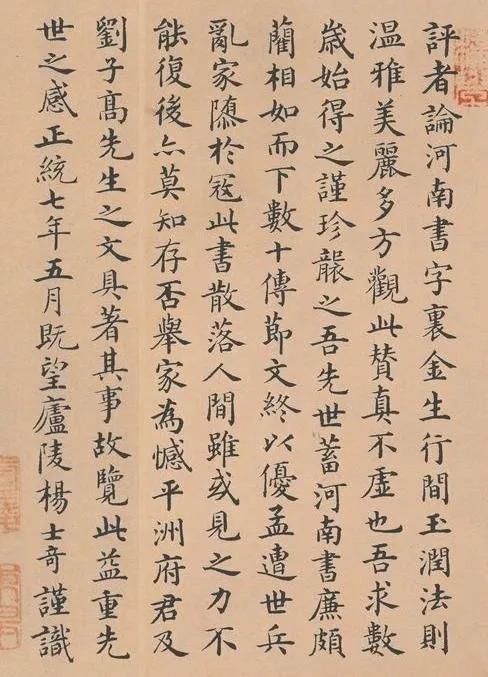 評者論河南書字裏金生行間玉潤法則
温雅美麗多方觀此賛真不虛也吾求數
歲始得之謹珍襲之吾先世蓄河南書廉頗
藺相如而下數十傳節文終以優孟遭世兵
亂家隊於冦此書散落人間雖或見之力不
能復後亦莫知存否舉家為憾平洲府君及
劉子髙先生之文具著其事故覽此益重先
世之感正統七年五月既望廬陵楊士竒謹識